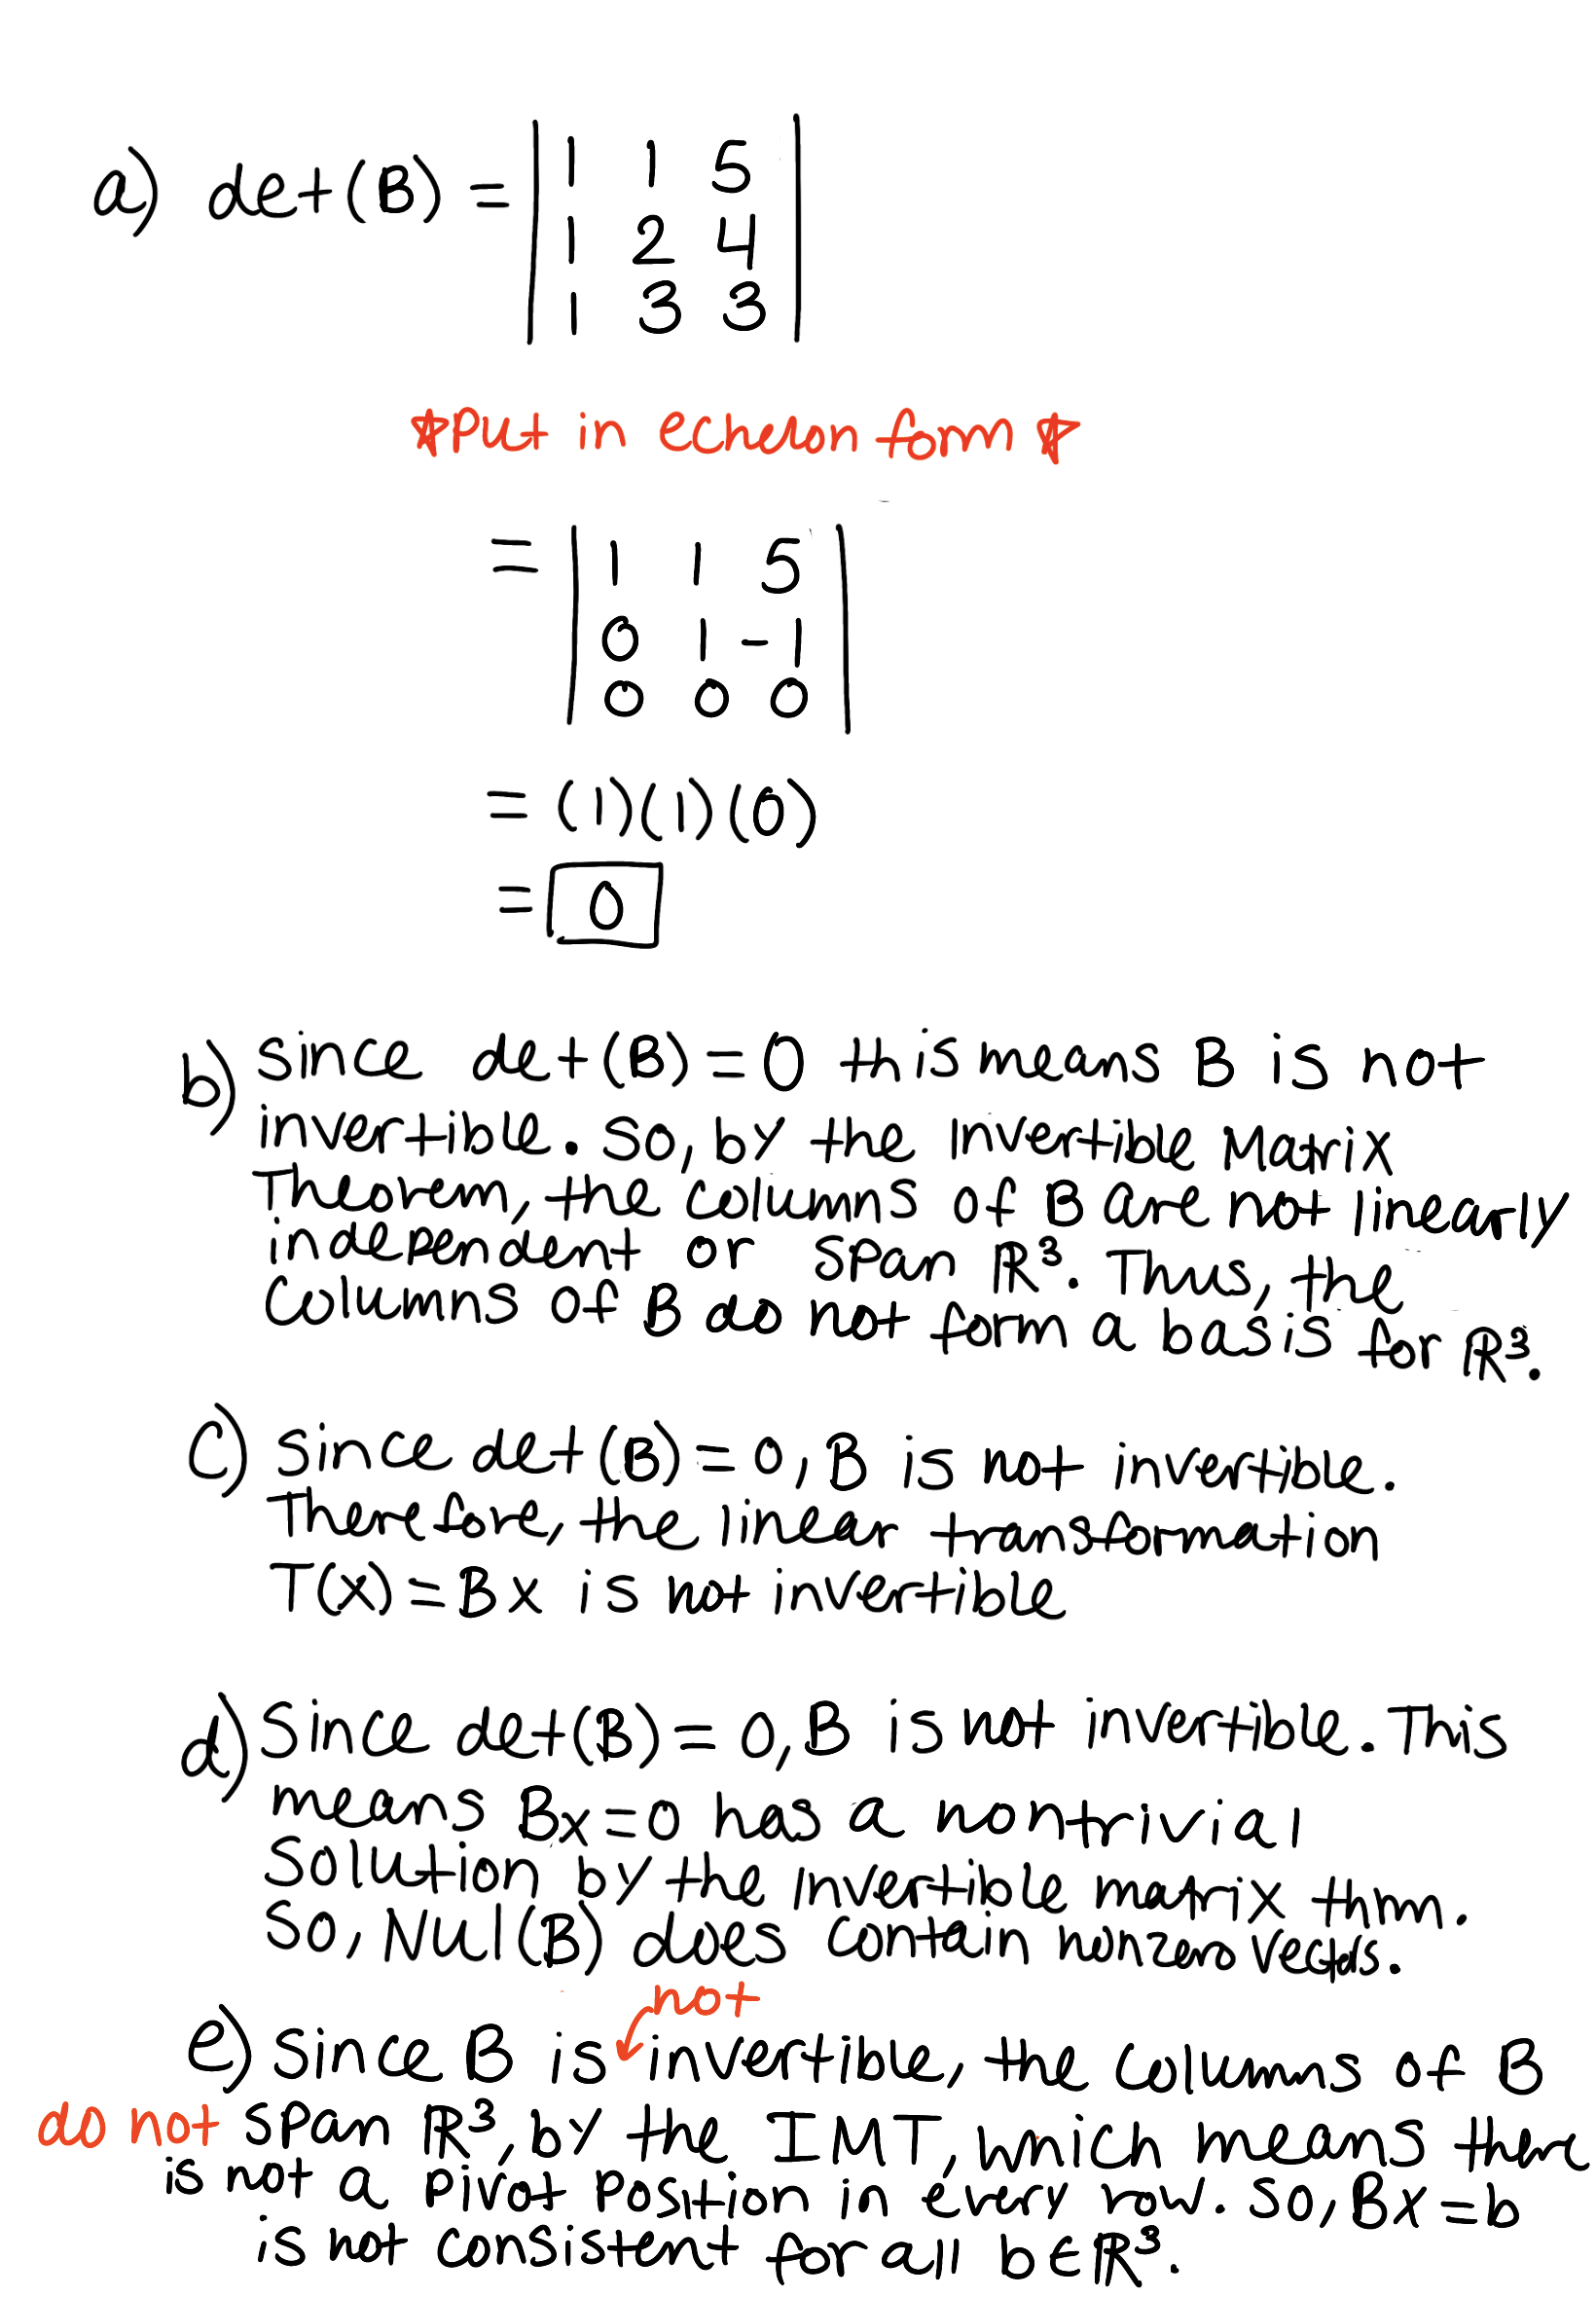 a) det(B) = | 1 1 5 |
| 1 2 4 |
| 1 3 3 |
☆Put in echelon form☆
= | 1 1 5 |
| 0 1 -1 |
| 0 0 0 |
= (1)(1)(0)
= 0
b) Since det(B) = 0 this means B is not
invertible. So, by the Invertible Matrix
Theorem, the columns of B are not linearly
independent or span ℝ³. Thus, the
columns of B do not form a basis for ℝ³.
c) Since det(B) = 0, B is not invertible.
Therefore, the linear transformation
T(x) = Bx is not invertible
d) Since det(B) = 0, B is not invertible. This
means Bx=0 has a nontrivial
solution by the invertible matrix thm.
So, Nul(B) does contain nonzero vectors.
not
e) Since B is invertible, the columns of B
do not span ℝ³, by the IMT, which means there
is not a pivot position in every row. So, Bx=b
is not consistent for all b∈ℝ³.